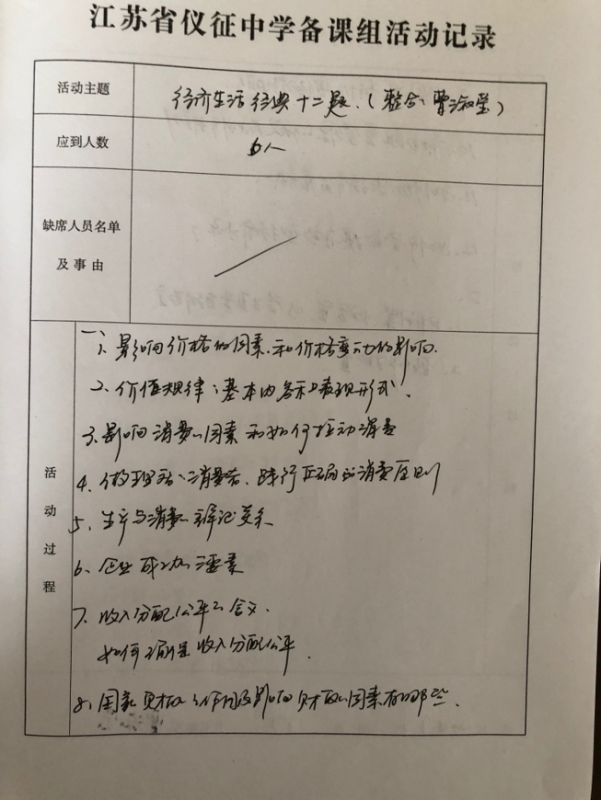 江苏省仪征中学备课组活动记录
活动主题
经济生活经典十二题.(整合:曹淑莹)
应到人数
6人
缺席人员名单
及事由
活动过程
一、
1、影响价格的因素和价格变动的影响.
2、价值规律:基本内容和表现形式.
3、影响消费的因素和如何拉动消费
4、做理智的消费者、践行正确的消费原则
5、生产与消费的辩证关系
6、企业成功的要素
7、收入分配公平的含义.
如何促进收入分配公平.
8、国家财政的作用及影响财政的因素有哪些.